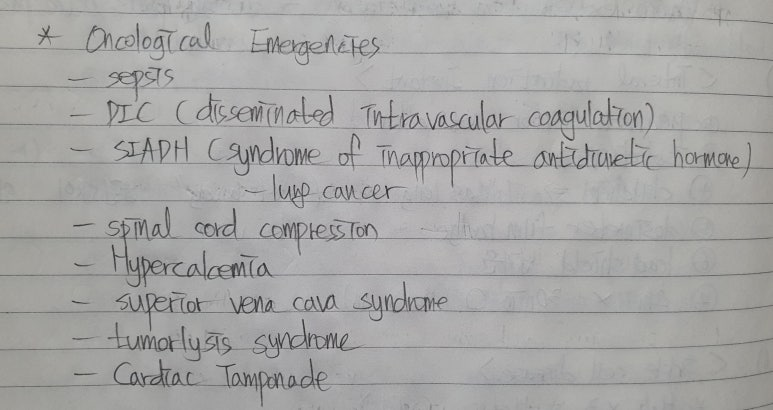 * Oncological Emergencies
- sepsis
- DIC (disseminated intravascular coagulation)
- SIADH (syndrome of inappropriate antidiuretic hormone)
- lung cancer
- spinal cord compression
- Hypercalcemia
- superior vena cava syndrome
- tumorlysis syndrome
- Cardiac Tamponade